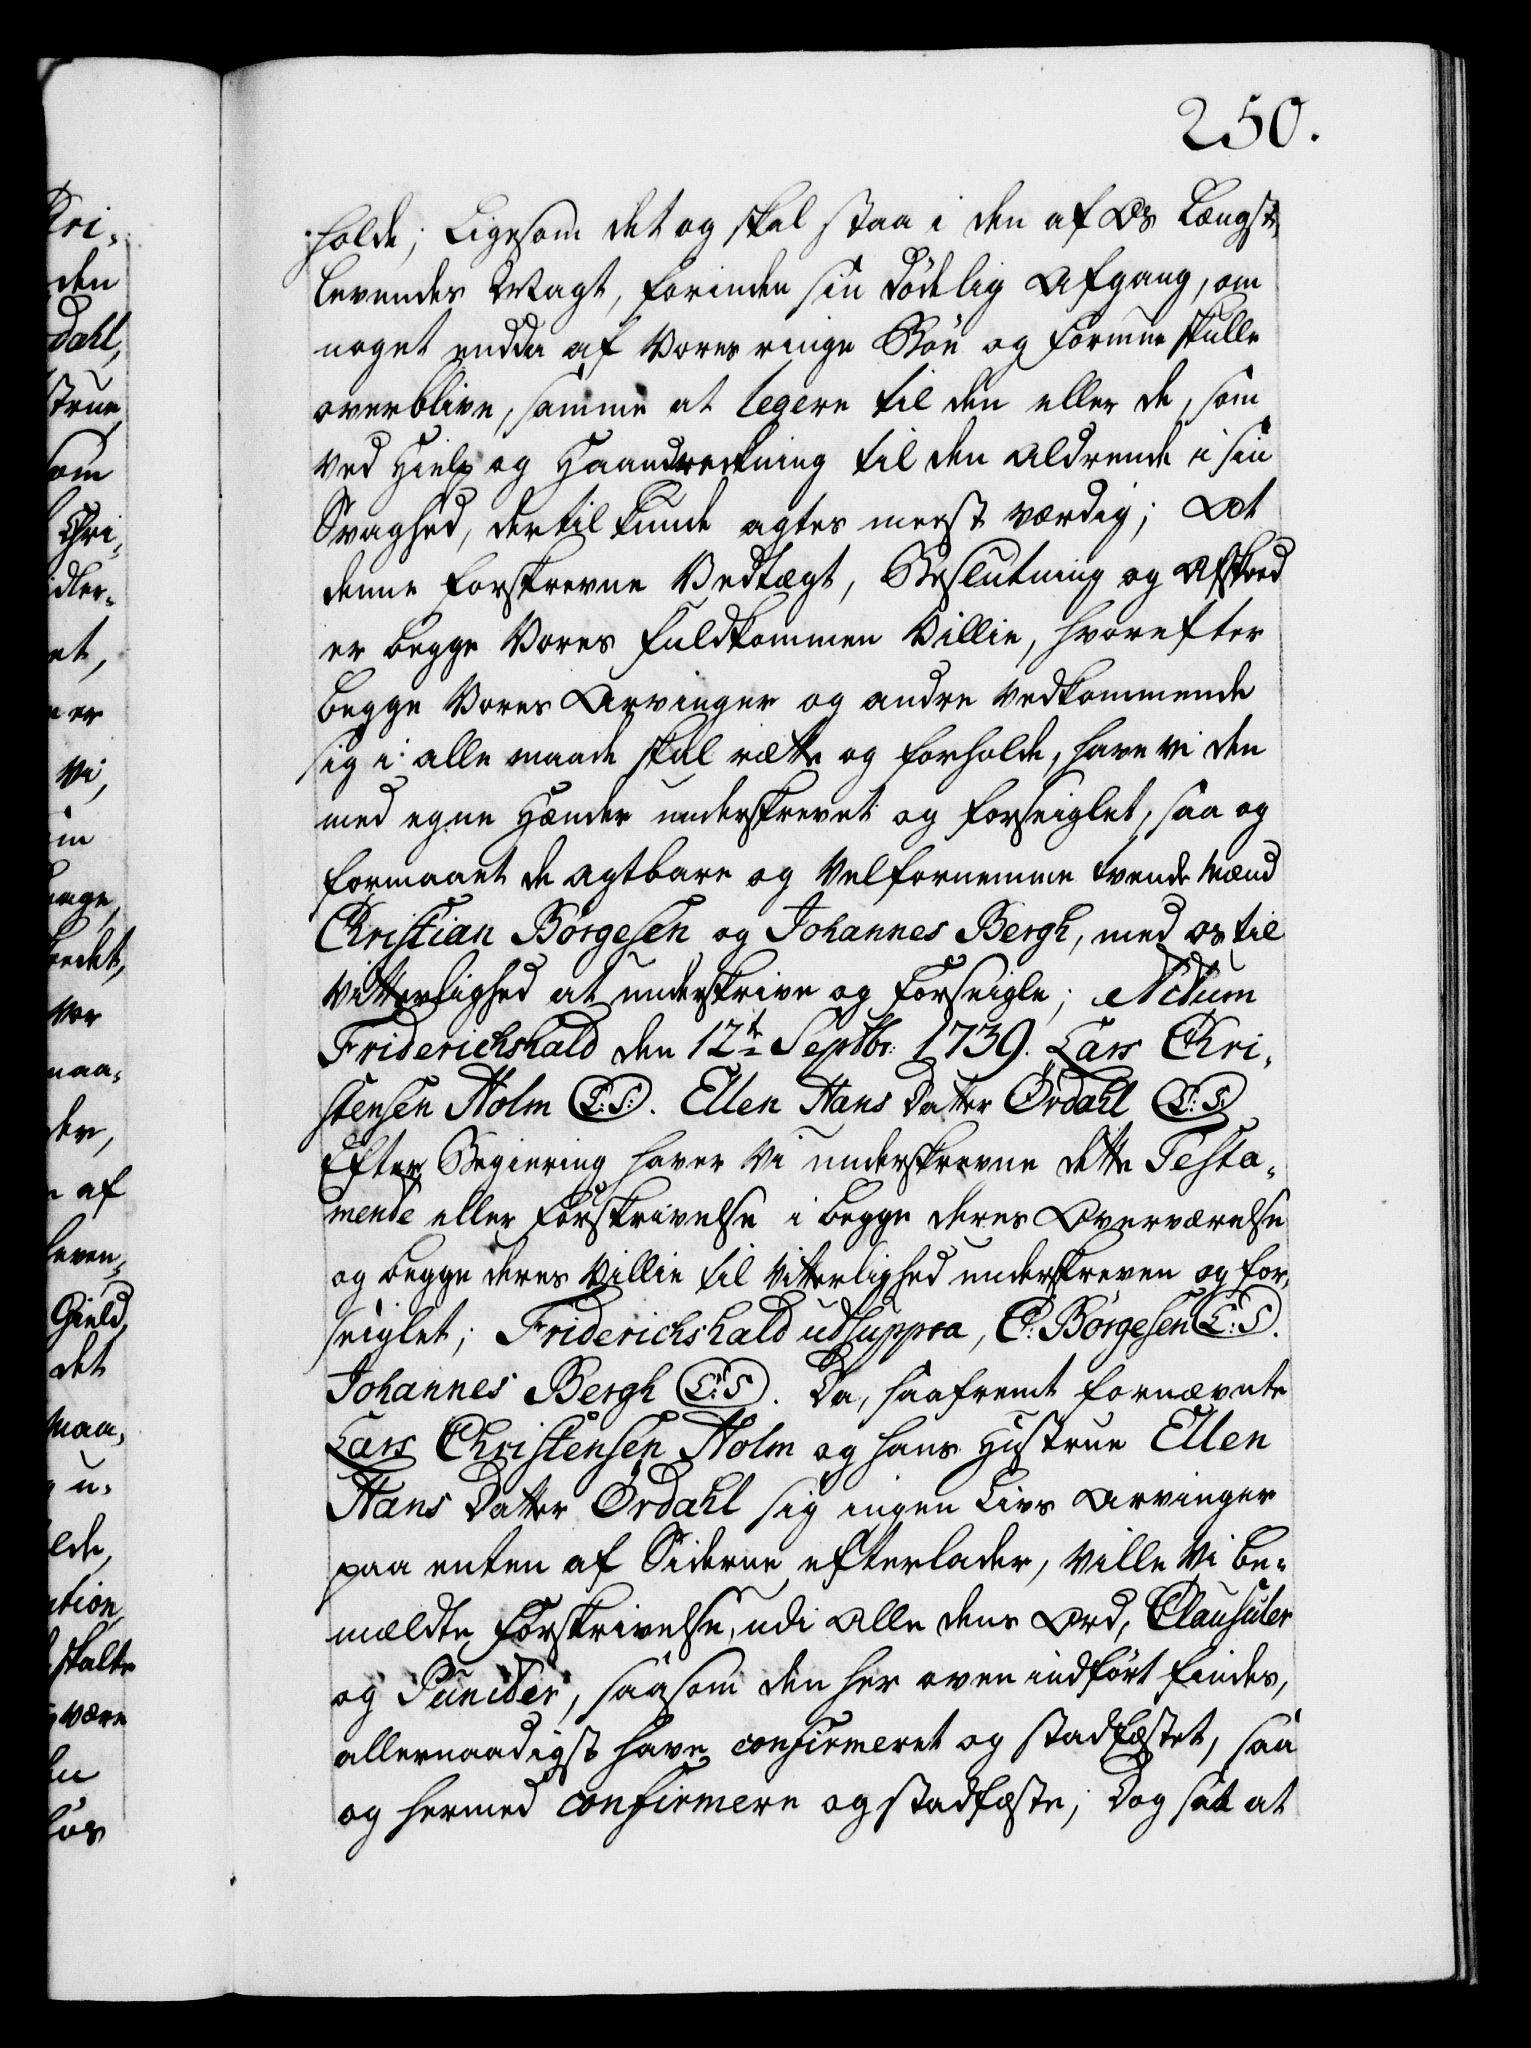 250.
holde; Ligesom det og skal staa i den af Os Længst-
levendes Magt, forinden sin dødelig Afgang, om
noget endda af Vores ringe Boe og formue skulle
overblive, samme at legere til den eller de, som
ved Hielp og Haandreckning til den Aldrende i sin
Svaghed, dertil kunde agtes meest værdig; At
denne forskrevne Vedtægt, Beslutning og Afskeed
er begge Vores fuldkommen Villie, hvorefter
begge Vores Arvinger og andre vedkommende
sig i alle maade skal rætte og forholde, have vi den
med egne Hænder underskrevet og forseiglet, saa og
formaaet de agtbare og Velfornemme tvende Mænd
Christian Börgesen og Johannes Bergh, med os til
Vitterlighed at underskrive og forseigle; Actum
Friderichshald den 12te Septbr: 1739. Lars Chri-
stensen Holm (L:S:). Ellen Hans Datter Ördahl (L:S)
Efter Begiering haver Vi underskrevne dette Testa-
mente eller forskrivelse i begge deres Overværelse
og begge deres Villie til Vitterlighed underskreven og for-
seiglet; Friderichshald ud suppra, C: Börgesen (L:S).
Johannes Bergh (L:S). Da, saafremt fornævnte
Lars Christensen Holm og hans Hustrue Ellen
Hans Datter Ördahl sig ingen Livs Arvinger
paa enten af Siderne efterlader, Ville Vi be-
mældte forskrivelse, udi Alle dens Ord, Clausuler
og Puncter, saasom den her oven indført findes,
allernaadigst have confirmeret og stadfæstet, saa
og hermed confirmere og stadfæste; Dog saa at